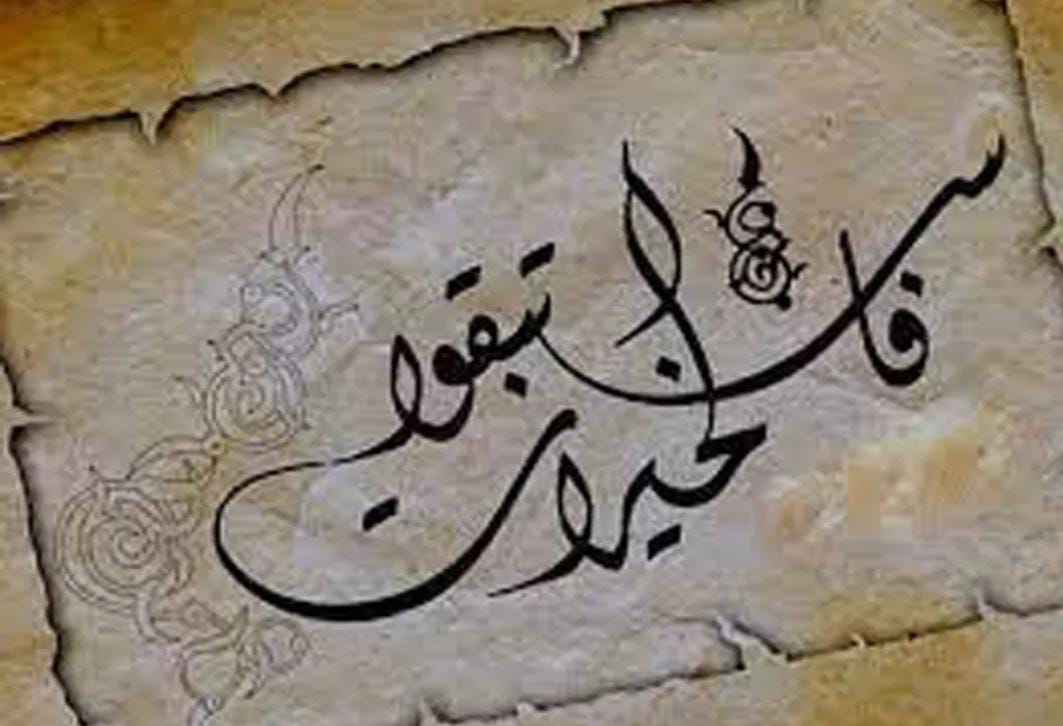 فاستبقوا الخيرات